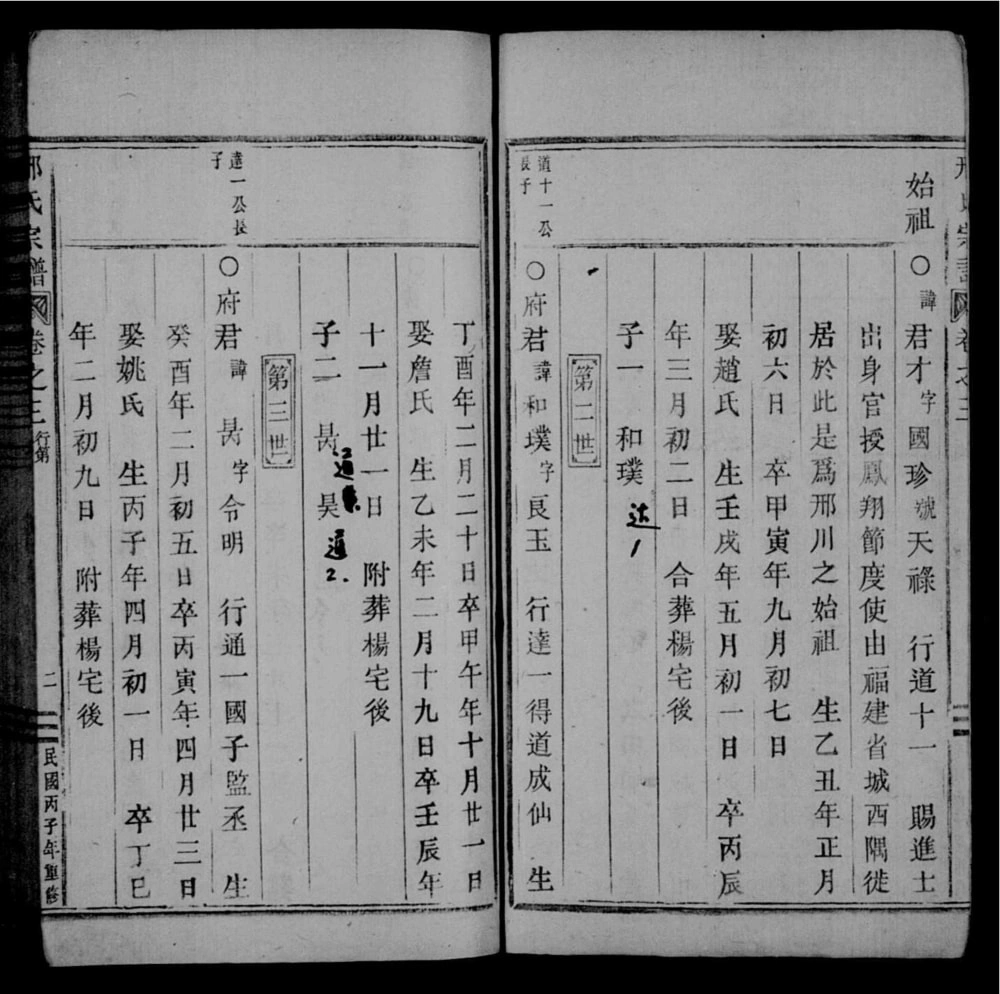 邢氏宗譜 卷之三
始祖 〇諱君才字國珍號天祿 行道十一 賜進士
出身官授鳳翔節度使由福建省城西隅徙
居於此是爲邢川之始祖 生乙丑年正月
初六日 卒甲寅年九月初七日
娶趙氏 生壬戌年五月初一日 卒丙辰
年三月初二日 合葬楊宅後
子一 和璞 达1
第二世
道十一公長子 〇府君諱和璞字良玉 行達一得道成仙 生
丁酉年二月二十日卒甲午年十月廿一日
娶詹氏 生乙未年二月十九日卒壬辰年
十一月廿一日 附葬楊宅後
子二 昺 昊 通2.
第三世
達一公長子 〇府君諱昺字令明 行通一國子監丞 生
癸酉年二月初五日卒丙寅年四月廿三日
娶姚氏 生丙子年四月初一日 卒丁巳
年二月初九日 附葬楊宅後
邢氏宗譜 卷之三 行第 二 民國丙子年重修